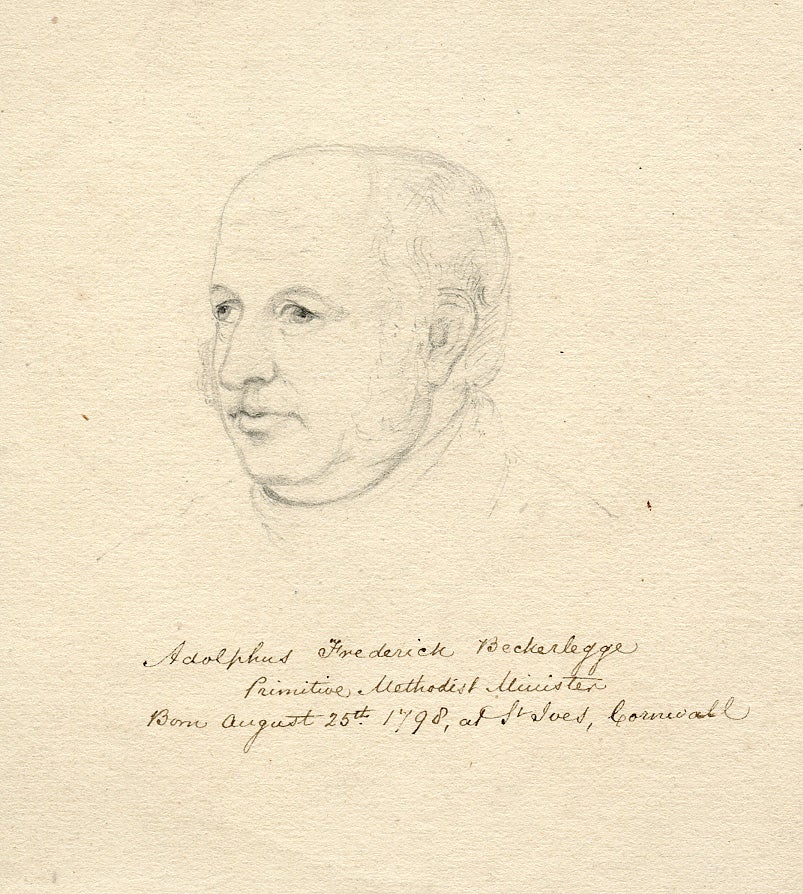 Adolphus Frederick Beckerlegge
Primitive Methodist Minister
Born August 25th 1798, at St Ives, Cornwall